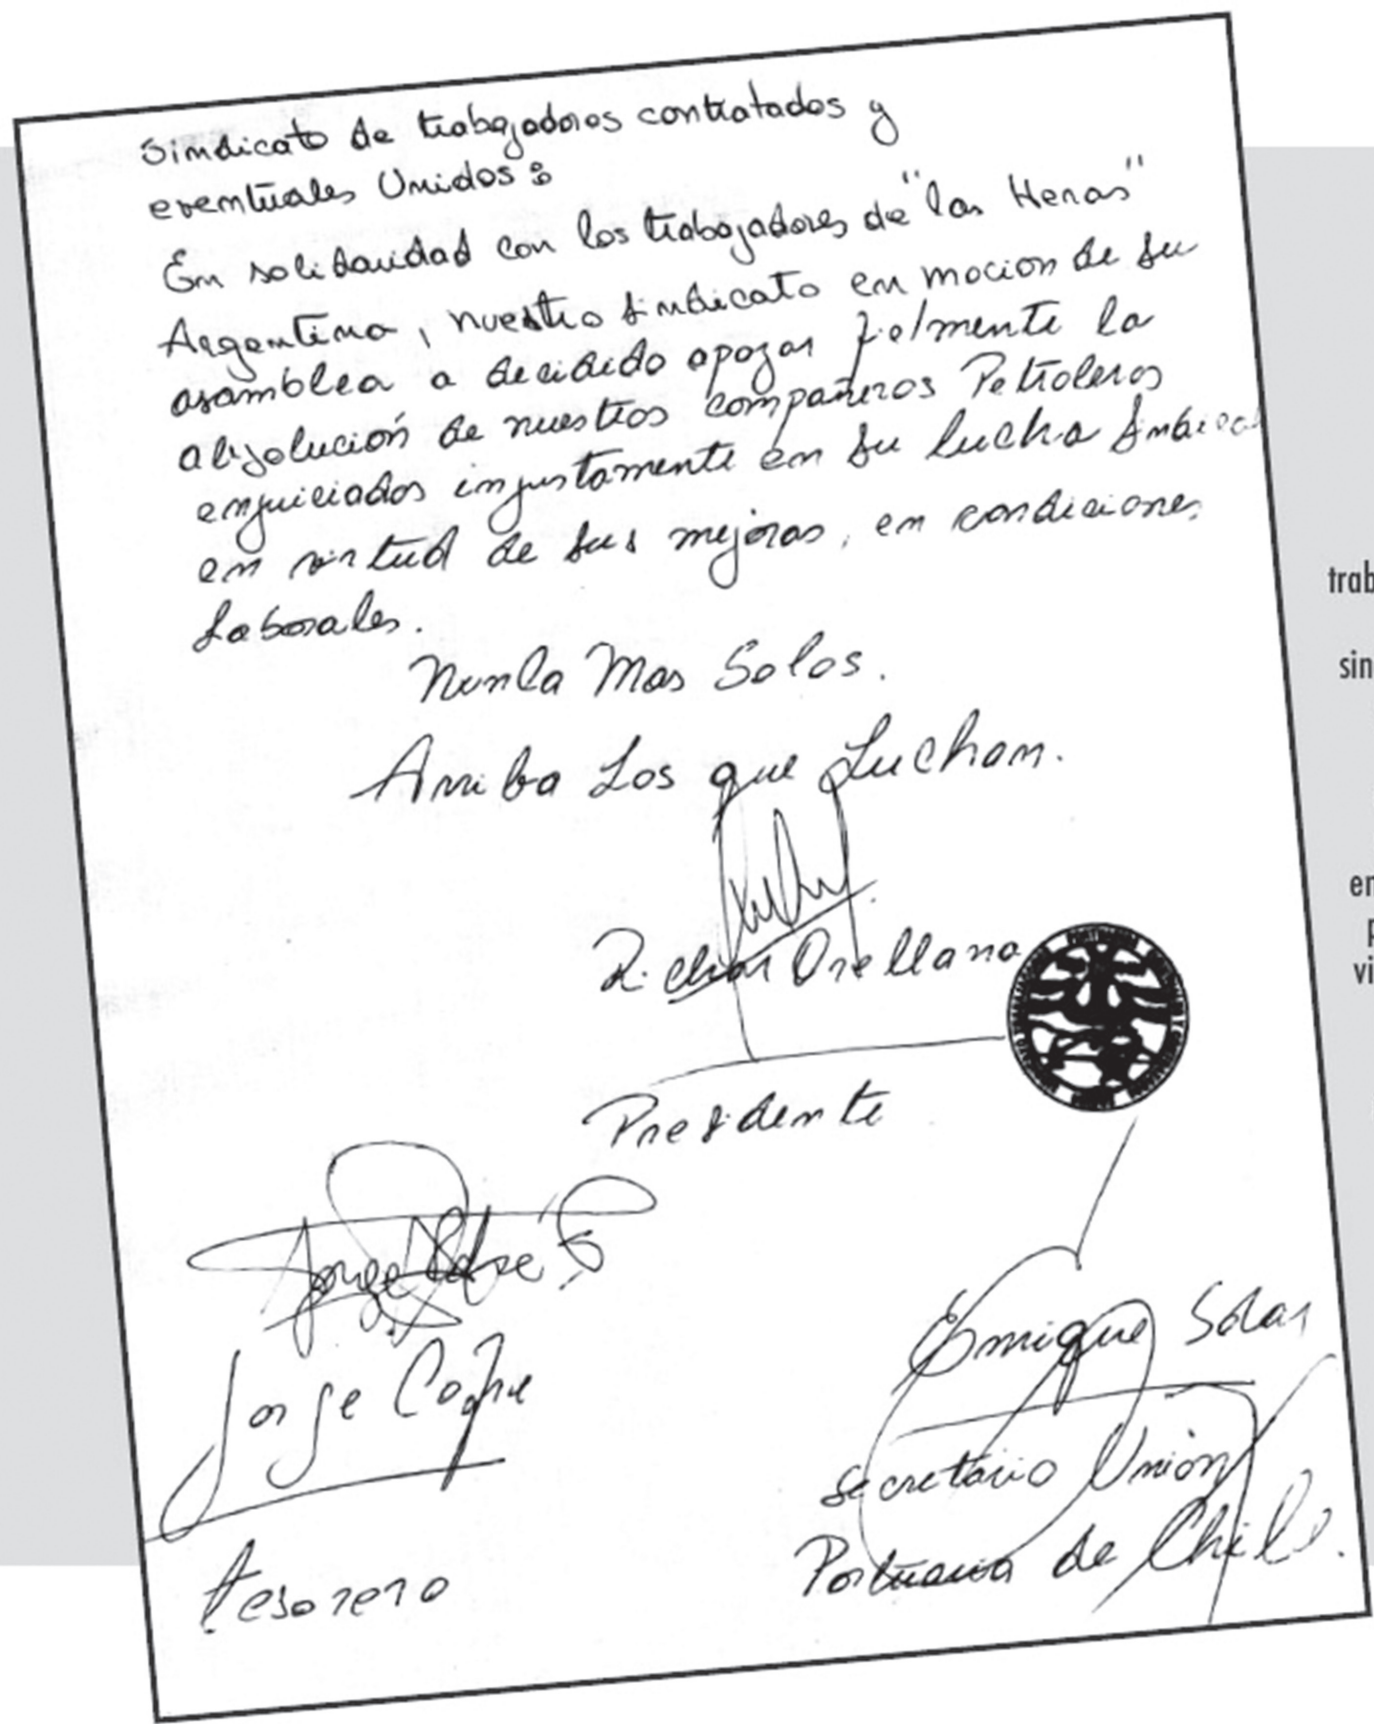 Sindicato de trabajadores contratados y
eventuales Unidos:
En solidaridad con los trabajadores de "las Heras"
Argentina, nuestro sindicato en mocion de su
asamblea a decidido apoyar fielmente la
absolución de nuestros compañeros Petroleros
enjuiciados injustamente en su lucha sindical
en virtud de sus mejoras, en condiciones
Laborales.
Nunca Mas Solos.
Arriba Los que Luchan.
Richar Orellana
Presidente
Jorge
Jorge Cofre
tesorero
Enrique Solar
Secretario Unión
Portuaria de Chile.
trab
sin
en
p
vi